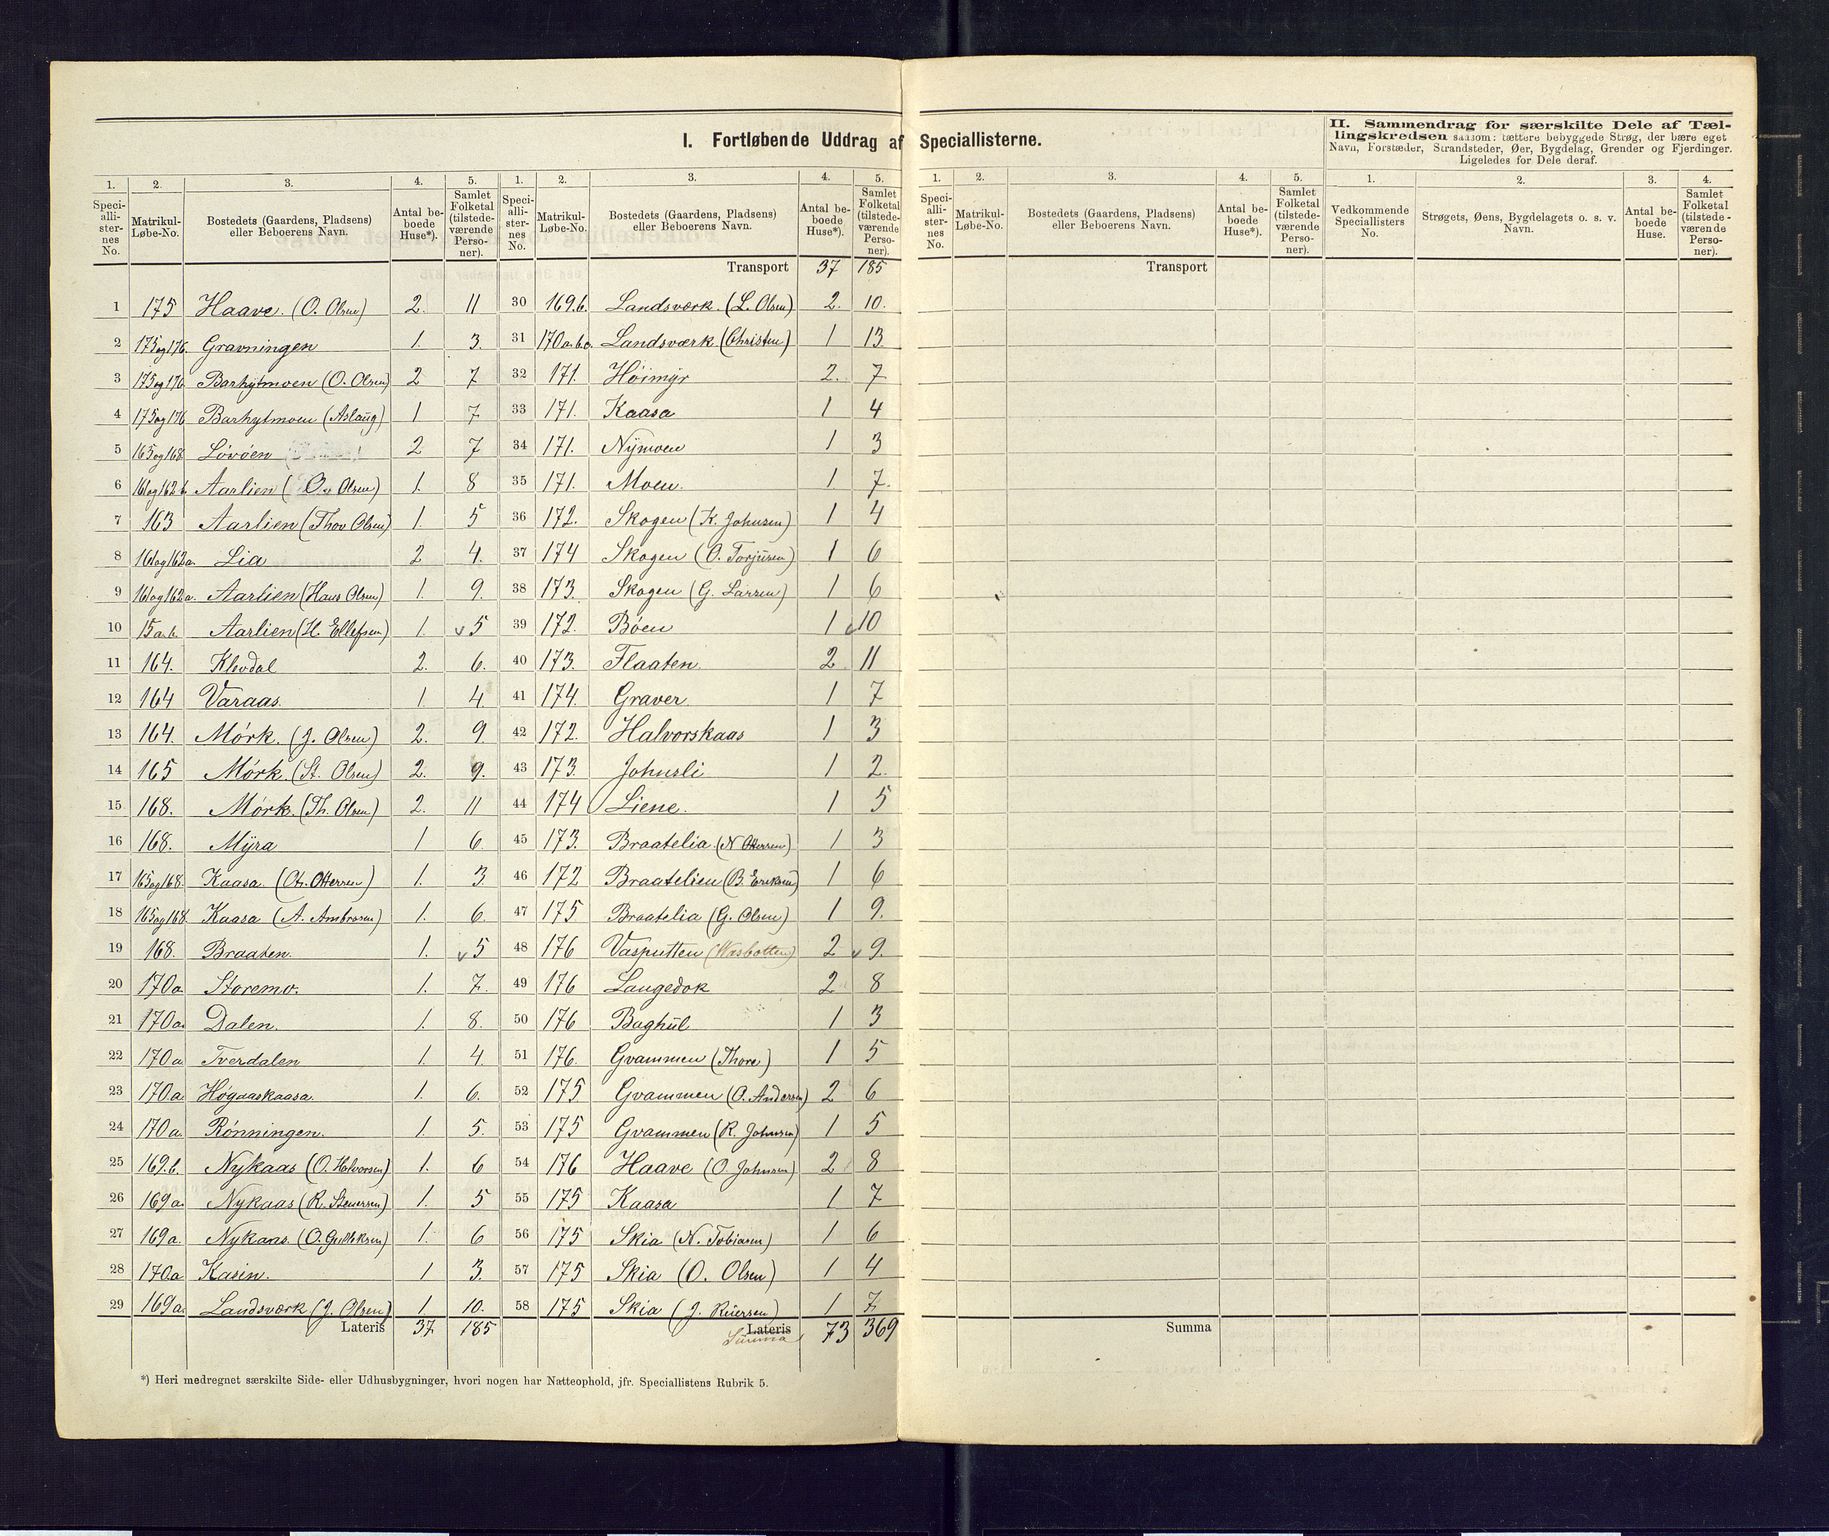 I. Fortløbende Uddrag af Speciallisterne.
II. Sammendrag for særskilte Dele af Tællingskredsen saasom: tættere bebyggede Strøg, der bære eget Navn, Forstæder, Strandsteder, Øer, Bygdelag, Grender og Fjerdinger. Ligeledes for Dele deraf.
1. 2. 3. 4. 5. 1. 2. 3. 4. 5. 1. 2. 3. 4. 5. 1. 2. 3. 4.
Speciallisternes No. Matrikul-Løbe-No. Bostedets (Gaardens, Pladsens) eller Beboerens Navn. Antal beboede Huse*). Samlet Folketal (tilstedeværende Personer).
Speciallisternes No. Matrikul-Løbe-No. Bostedets (Gaardens, Pladsens) eller Beboerens Navn. Antal beboede Huse*). Samlet Folketal (tilstedeværende Personer).
Speciallisternes No. Matrikul-Løbe-No. Bostedets (Gaardens, Pladsens) eller Beboerens Navn. Antal beboede Huse*). Samlet Folketal (tilstedeværende Personer).
Vedkommende Speciallisters No. Strøgets, Øens, Bygdelagets o. s. v. Navn. Antal beboede Huse. Samlet Folketal (tilstedeværende Personer).
1 175 Haave. (O. Olsen) 2. 11
2 175og176. Gravningen 1. 3.
3 175og176 Barhytmoen (O. Olsen) 2 7
4 175og176 Barhytmoen (Aslaug) 1. 7
5 165og168 Løvøen 2 7
6 161og162b. Aarlien (O. Olsen) 1. 8
7 163 Aarlien (Thov Olsen) 1. 5
8 161og162a. Lia 2 4.
9 161og162a. Aarlien (Hans Olsen) 1. 9.
10 15a.b. Aarlien (H. Ellefsen) 1. 5
11 164. Klevdal 2. 6.
12 164 Varaas. 1. 4.
13 164. Mørk. (J. Olsen) 2. 9.
14 165 Mørk. (St. Olsen) 2. 9.
15 168. Mørk. (Th. Olsen) 2. 11
16 168. Myra 1 6.
17 165og168. Kaasa. (Ot. Ottersen) 1. 3.
18 165og168. Kaasa (A. Ambrosen) 1. 6.
19 168. Braaten. 1. 5
20 170a Storemo. 1. 7.
21 170a. Dalen. 1. 8.
22 170a Tverdalen 1. 4
23 170.a. Høgaaskaasa. 1. 6.
24 170a. Rönningen. 1. 5.
25 169.b. Nykaas (O. Halvorsen) 1. 6
26 169a. Nykaas (R. Stenersen) 1. 5
27 169a. Nykaas. (O. Gulleksen) 1. 6
28 170a Kasin. 1 3.
29 169a. Landsværk (J. Olsen) 1. 10.
Lateris 37 185
Transport 37 185
30 169.b. Landsværk (L. Olsen) 2. 10.
31 170a.b.c. Landsværk. (Christen) 1 13
32 171. Höimyr 2. 7
33 171. Kaasa 1 4
34 171. Nymoen 1 3
35 171. Moen. 1 7.
36 172. Skogen (K. Johnsen) 1 4
37 174 Skogen (O. Torjusen) 1 6
38 173. Skogen (G. Larsen) 1 6
39 172. Bøen 1 10
40 173. Flaaten. 2 11
41 174. Graver. 1 7
42 172. Halvorskaas 1 3
43 173. Johnsli 1 2.
44 174 Liene. 1 5
45 173. Braatelia (N Ottersen) 1 3
46 172 Braatelien (B. Eriksen) 1 6
47 175 Braatelia (G. Olsen) 1 9.
48 176 Vasputten (Wasbotten) 2 9.
49 176 Langedok 2 8
50 176 Baghul 1 3
51 176. Gvammen (Thore) 1 5
52 175 Gvammen (O. Andersen) 2 6
53 175 Gvammen (R. Johnsen) 1 5
54 176 Haave (O. Johnsen) 2 8
55 175 Kaasa 1 7
56 175 Skia (N. Tobiasen) 1 6
57 175 Skia (O. Olsen) 1 4
58 175 Skia (J. Reiersen) 1 7
Lateris Summa 73 369
Transport
Summa
*) Heri medregnet særskilte Side- eller Udhusbygninger, hvori nogen har Natteophold, jfr. Speciallistens Rubrik 5.